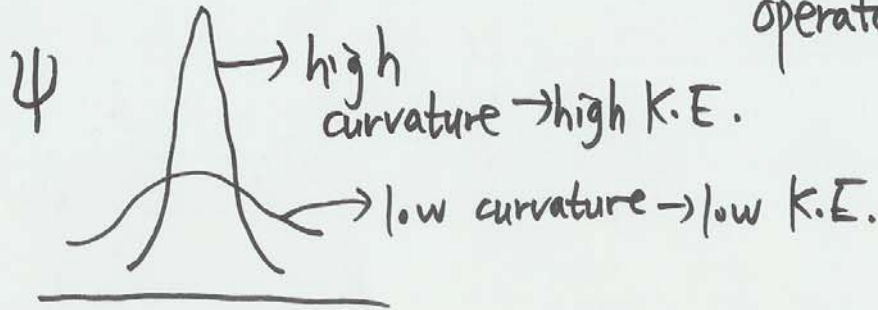 ψ
high
curvature → high K.E.
low curvature → low K.E.